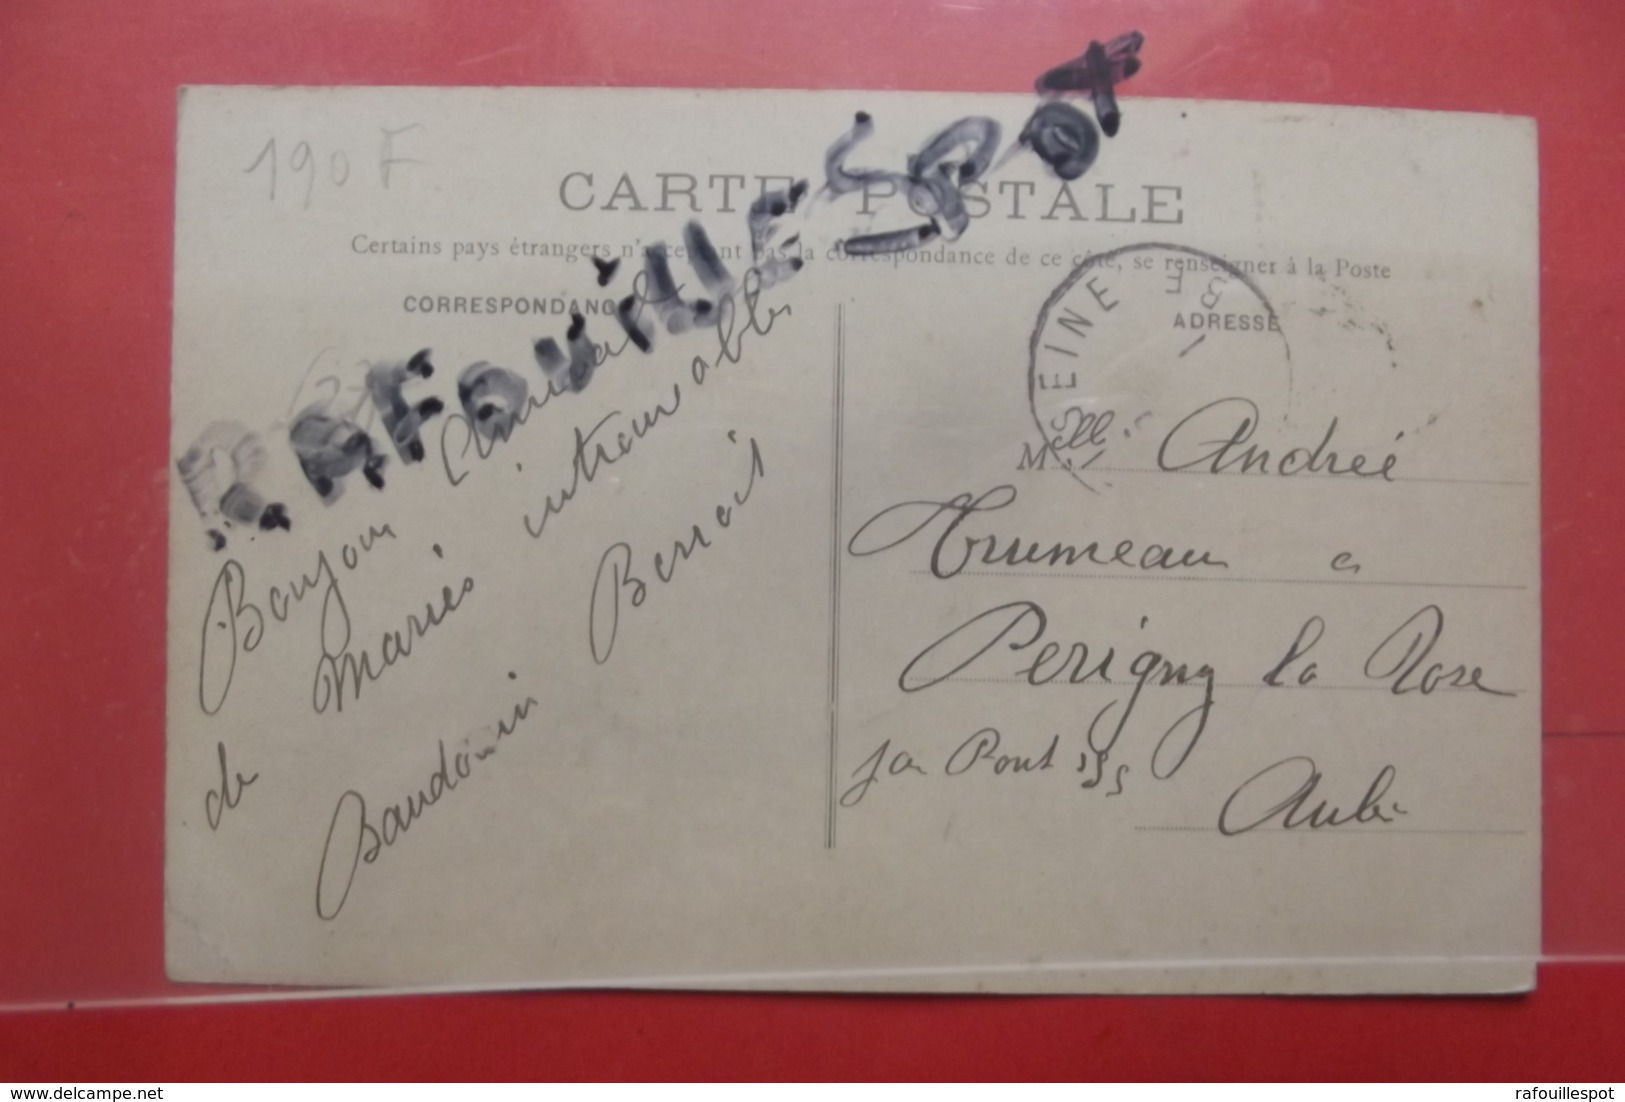 190 F
RAFOUILLESPOT
CARTE POSTALE
Certains pays étrangers n'acceptent pas la correspondance de ce côté, se renseigner à la Poste
CORRESPONDANCE
ADRESSE
SEINE
Bonjour Amical
de Mariés introuvables
Baudouin Benoit
Melle Andrée
Trumeau a
Périgny la Rose
par Pont s/s
Aube
delcampe.net
rafouillespot